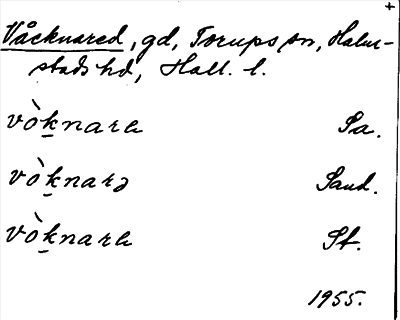 +
Våcknared, gd, Torups sn, Halm-
stads hd, Hall. l.
vòk̲narɐ Sa.
vòk̲narə Sand.
vòk̲narɐ St.
1955.